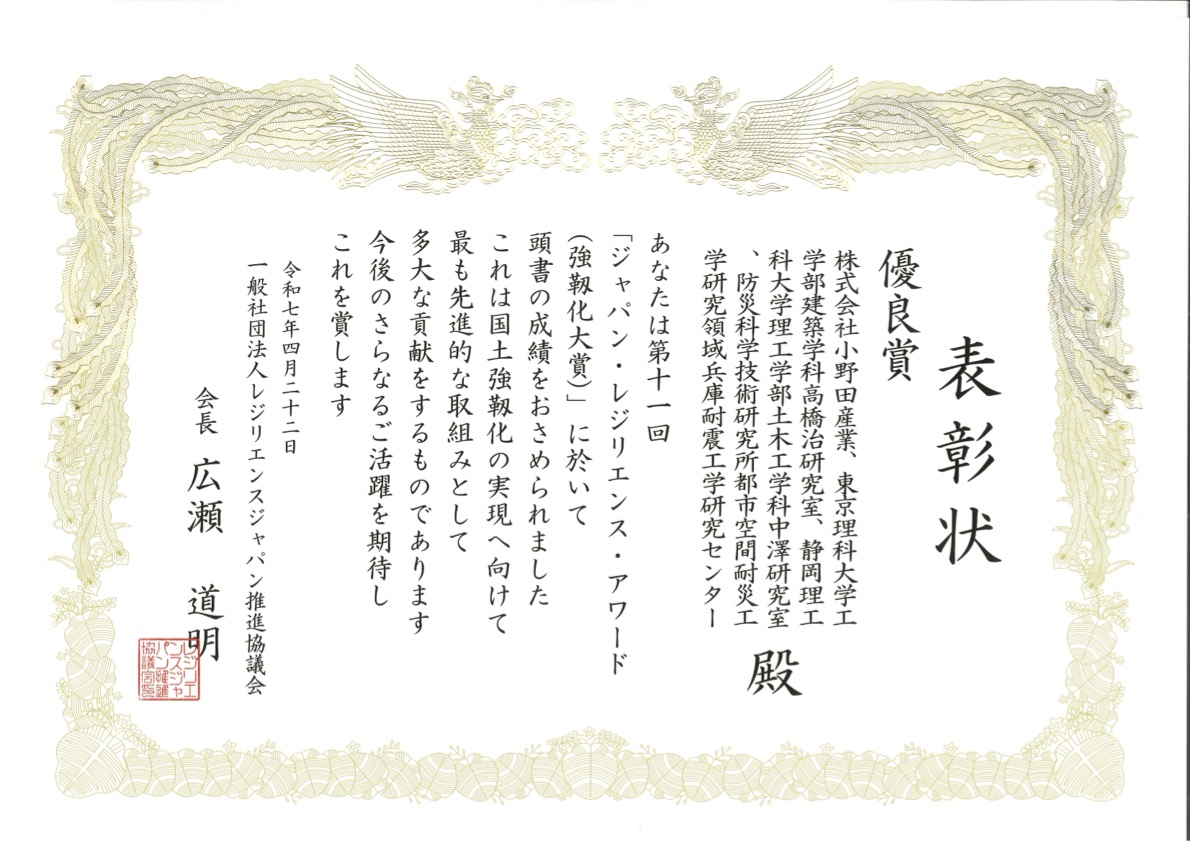 表彰状
優良賞
株式会社小野田産業、東京理科大学工
学部建築学科高橋治研究室、静岡理工
科大学理工学部土木工学科中澤研究室
、防災科学技術研究所都市空間耐災工
学研究領域兵庫耐震工学研究センター
殿
あなたは第十一回
「ジャパン・レジリエンス・アワード
(強靱化大賞)」に於いて
頭書の成績をおさめられました
これは国土強靱化の実現へ向けて
最も先進的な取組みとして
多大な貢献をするものであります
今後のさらなるご活躍を期待し
これを賞します
令和七年四月二十二日
一般社団法人レジリエンスジャパン推進協議会
会長 広瀬 道明
レジリエ
ンスジャ
パン推進
協議会